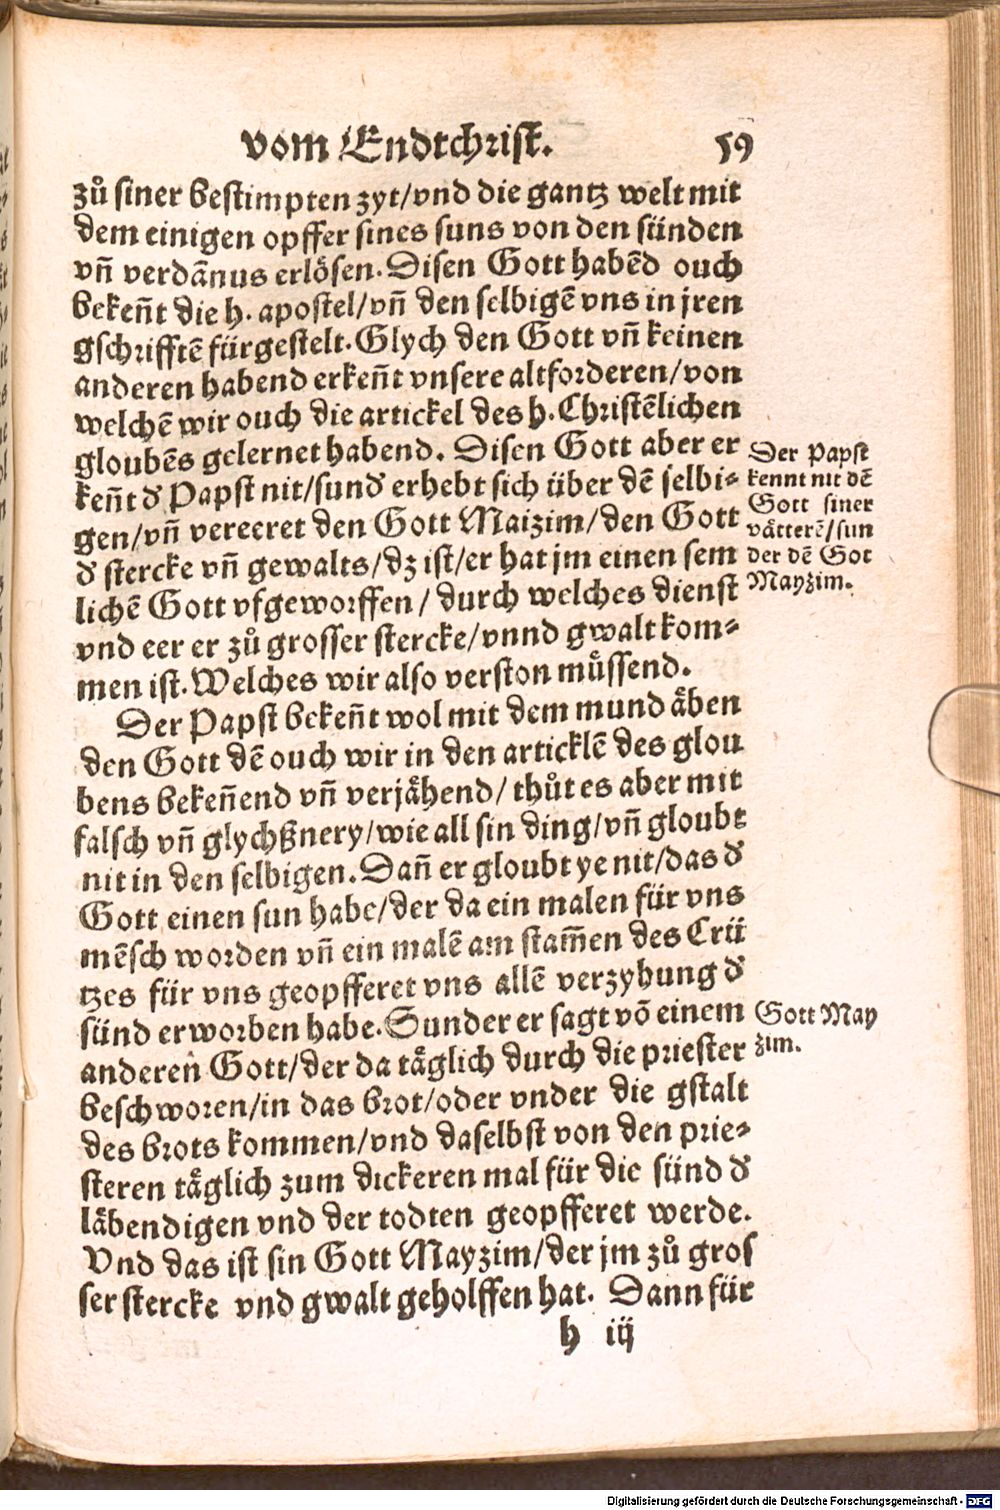 vom Endtchrist. 59
zů siner bestimpten zyt/vnd die gantz welt mit
dem einigen opffer sines suns von den sünden
vñ verdãnus erlösen. Disen Gott habẽd ouch
bekeñt die h. apostel/vñ den selbigẽ vns in jren
gschrifftẽ fürgestelt. Glych den Gott vñ keinen
anderen habend erkeñt vnsere altforderen/von
welchẽ wir ouch die artickel des h. Christẽlichen
gloubẽs gelernet habend. Disen Gott aber er
keñt đ Papst nit/sunđ erhebt sich über dẽ selbi-
gen/vñ vereeret den Gott Maizim/den Gott
đ stercke vñ gewalts/dz ist/er hat jm einen sem
lichẽ Gott vfgeworffen/ durch welches dienst
vnd eer er zů grosser stercke/vnnd gwalt kom-
men ist. Welches wir also verston müssend.
Der Papst
kennt nit dẽ
Gott siner
våtterẽ/sun
der dẽ Got
Mayzim.
Der Papst bekeñt wol mit dem mund åben
den Gott dẽ ouch wir in den articklẽ des glou
bens bekeñend vñ verjåhend/ thůt es aber mit
falsch vñ glychßnery/wie all sin ding/vñ gloubt
nit in den selbigen. Dañ er gloubt ye nit/das đ
Gott einen sun habe/der da ein malen für vns
mẽsch worden vñ ein malẽ am stam̃en des Crü
tzes für vns geopfferet vns allẽ verzyhung đ
sünd erworben habe. Sunder er sagt võ einem
anderen Gott/der da tåglich durch die priester
beschworen/in das brot/oder vnder die gstalt
des brots kommen/vnd daselbst von den prie-
steren tåglich zum dickeren mal für die sünd đ
låbendigen vnd der todten geopfferet werde.
Vnd das ist sin Gott Mayzim/der jm zů gros
ser stercke vnd gwalt geholffen hat. Dann für
Gott May
zim.
h iij
Digitalisierung gefördert durch die Deutsche Forschungsgemeinschaft - DFG